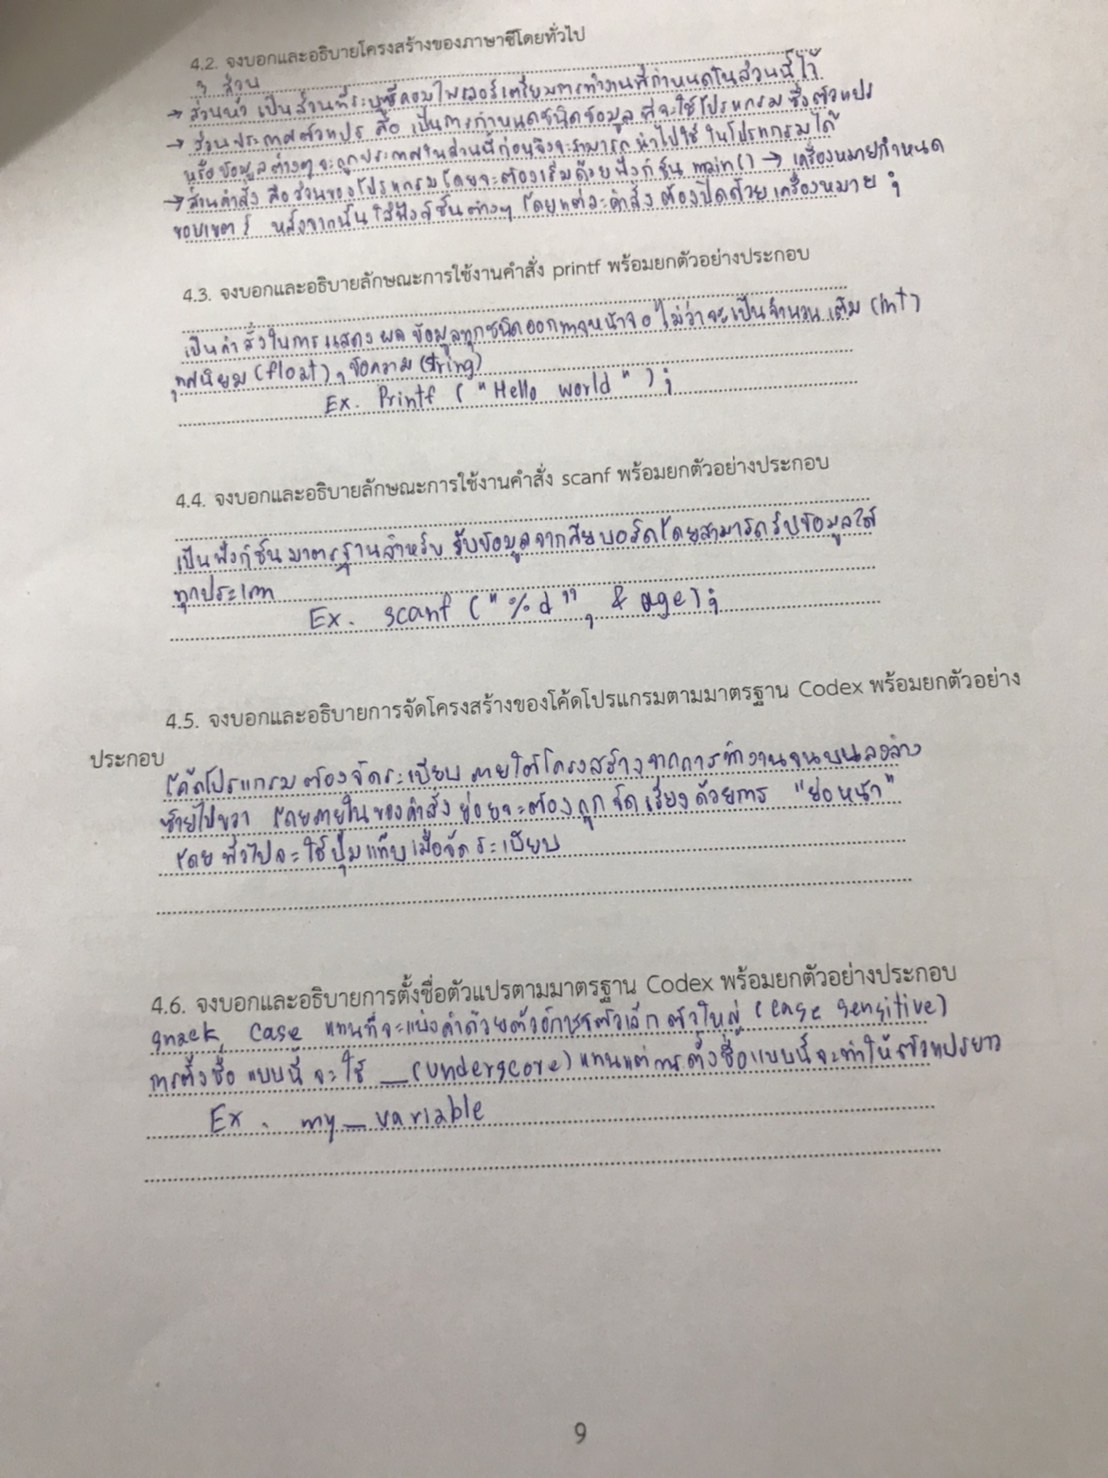 4.2. จงบอกและอธิบายโครงสร้างของภาษาซีโดยทั่วไป
3 ส่วน
→ ส่วนหัว เป็นส่วนที่ระบุซีคอมไพเลอร์เตรียมการทำงานที่กำหนดในส่วนนี้ไว้
→ ส่วนประกาศตัวแปร คือ เป็นการกำหนดชนิดข้อมูล ที่จะใช้โปรแกรม ซึ่งตัวแปร
หรือข้อมูลต่างๆจะถูกประกาศในส่วนนี้ก่อนจึงจะสามารถ นำไปใช้ในโปรแกรมได้
→ ส่วนคำสั่ง คือส่วนของโปรแกรมโดยจะต้องเริ่มด้วยฟังก์ชัน main() → เครื่องหมายกำหนด
ขอบเขต { หลังจากนั้นใส่ฟังก์ชันต่างๆ โดยแต่ละคำสั่ง ต้องปิดด้วย เครื่องหมาย ;
4.3. จงบอกและอธิบายลักษณะการใช้งานคำสั่ง printf พร้อมยกตัวอย่างประกอบ
เป็นคำสั่งในการแสดงผลข้อมูลทุกชนิดออกทางหน้าจอ ไม่ว่าจะเป็นจำนวนเต็ม (Int)
ทศนิยม (float) , ข้อความ (string)
Ex. Printf ( "Hello world" ) ;
4.4. จงบอกและอธิบายลักษณะการใช้งานคำสั่ง scanf พร้อมยกตัวอย่างประกอบ
เป็นฟังก์ชันมาตรฐานสำหรับ รับข้อมูลจากคียบอร์ดโดยสามารถรับข้อมูลได้
ทุกประเภท
Ex. scanf ( "%d" , & age ) ;
4.5. จงบอกและอธิบายการจัดโครงสร้างของโค้ดโปรแกรมตามมาตรฐาน Codex พร้อมยกตัวอย่าง
ประกอบ
โค้ดโปรแกรมต้องจัดระเบียบ ภายใต้โครงสร้างจากการทำงานจนบนลงล่าง
ซ้ายไปขวา โดยภายในของคำสั่งย่อยจะต้องถูกจัดเรียงด้วยการ "ย่อหน้า"
โดยทั่วไปจะใช้ปุ่มแท็บเมื่อจัดระเบียบ
4.6. จงบอกและอธิบายการตั้งชื่อตัวแปรตามมาตรฐาน Codex พร้อมยกตัวอย่างประกอบ
snack case แทนที่จะแบ่งคำด้วยตัวอักษรตัวเล็ก ตัวใหญ่ (case sensitive)
การตั้งชื่อ แบบนี้ จะใช้ _ (underscore) แทนแต่การตั้งชื่อแบบนี้จะทำให้ตัวแปรยาว
Ex. my _ variable
9